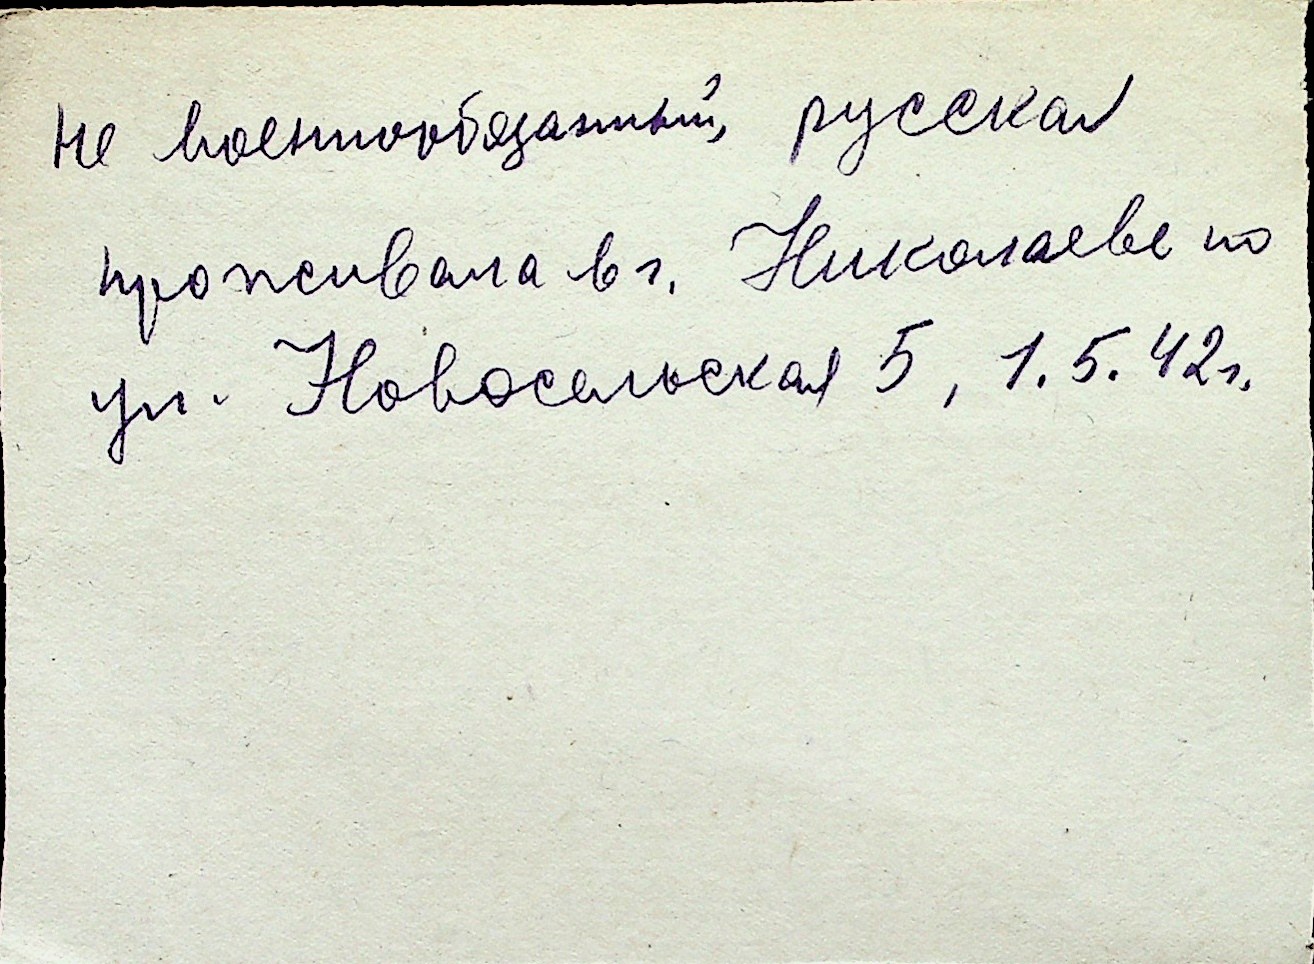 не военнообязанный, русская
проживала в г. Николаеве по
ул. Новосельская 5, 1.5.42г.